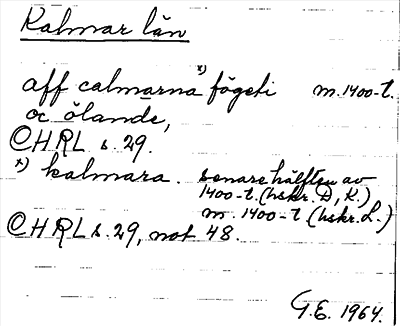 Kalmar län
aff calmarna x) fögeti m. 1400-t.
oc ölande,
CHRL s. 29.
x) kalmara. senare hälften av
1400-t. (hskr. D, K.)
m. 1400-t (hskr. L.)
CHRL s. 29, not 48.
G.E. 1964.